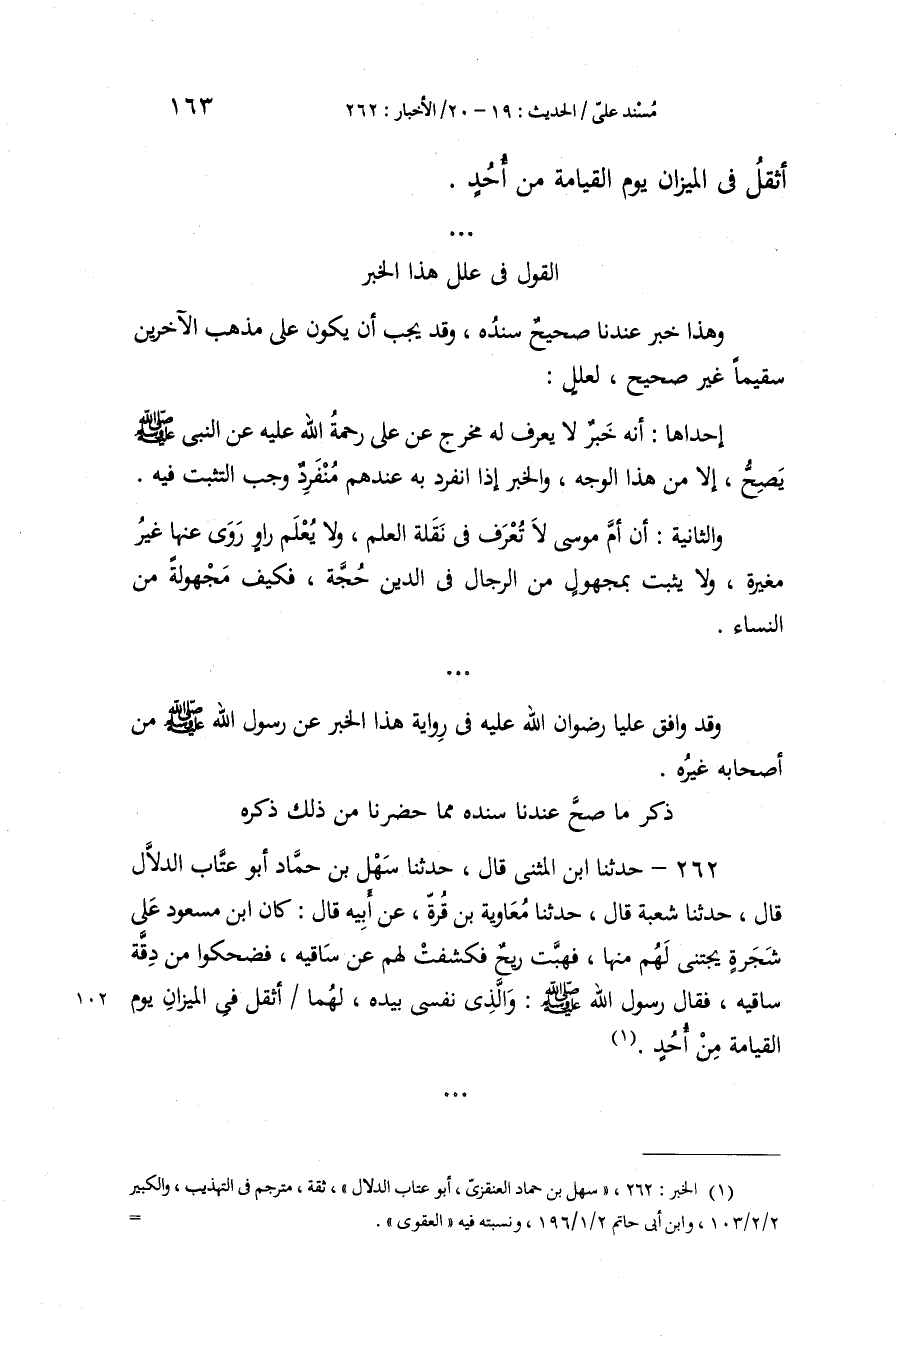 مُسْند علىّ / الحديث : ١٩ – ٢٠/ الأخبار : ٢٦٢ ١٦٣
أثقلُ فى الميزان يوم القيامة من أُحُدٍ .
...
القول فى علل هذا الخبر
وهذا خبر عندنا صحيحٌ سندُه ، وقد يجب أن يكون على مذهب الآخرين
سقيماً غير صحيح ، لعللٍ :
إحداها : أنه خَبرٌ لا يعرف له مخرج عن على رحمةُ الله عليه عن النبى ﷺ
يَصحُّ ، إلا من هذا الوجه ، والخبر إذا انفرد به عندهم مُنْفَرِدٌ وجب التثبت فيه .
والثانية : أن أمَّ موسى لاَ تُعْرَف فى نَقَلة العلم ، ولا يُعْلَم راوٍ رَوَى عنها غيرُ
مغيرة ، ولا يثبت بمجهولٍ من الرجال فى الدين حُجَّة ، فكيف مَجْهولةً من
النساء .
...
وقد وافق عليا رضوان الله عليه فى رِواية هذا الخبر عن رسول الله ﷺ من
أصحابه غيرُه .
ذكر ما صحَّ عندنا سنده مما حضرنا من ذلك ذكره
٢٦٢ – حدثنا ابن المثنى قال ، حدثنا سَهْل بن حمَّاد أبو عتَّاب الدلاَّل
قال ، حدثنا شعبة قال ، حدثنا مُعَاوية بن قُرّة ، عن أَبِيه قال : كان ابن مسعود عَلى
شَجَرةٍ يجتنى لَهُم منها ، فهبَّت ريحٌ فكشفتْ لهم عن سَاقيه ، فضحكوا من دِقَّة
ساقيه ، فقال رسول الله ﷺ : وَالَّذِى نفسى بيده ، لهُما / أثقل فِى الميزانِ يوم ١٠٢
القيامة مِنْ أُحُدٍ .(١)
...
(١) الخبر : ٢٦٢ ، « سهل بن حماد العنقزىّ ، أبو عتاب الدلال » ، ثقة ، مترجم فى التهذيب ، والكبير
١٠٣/٢/٢ ، وابن أبى حاتم ١٩٦/١/٢ ، ونسبته فيه « العقوى » . =